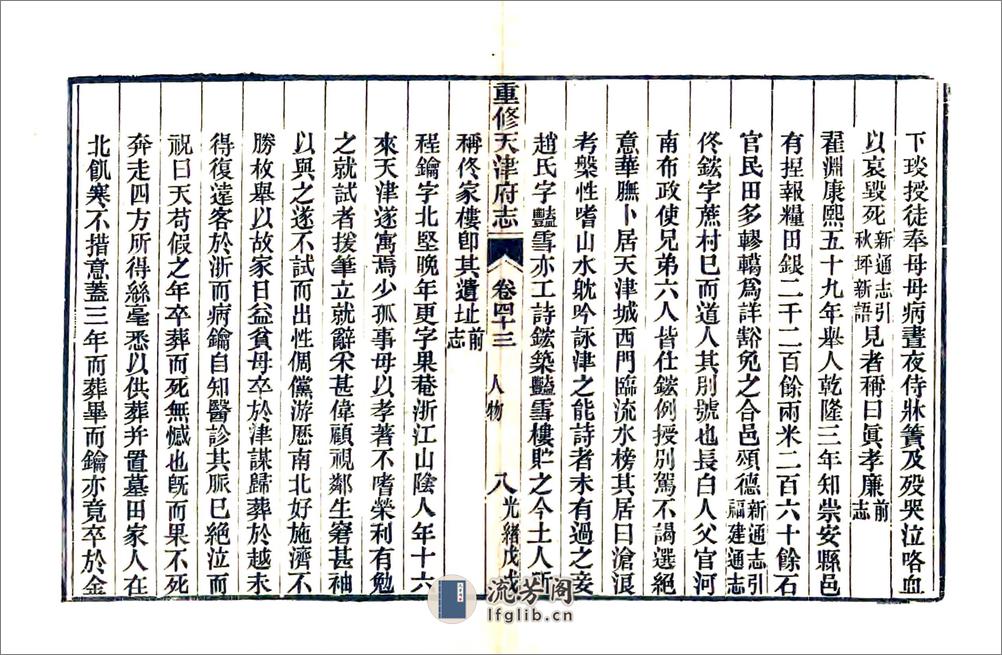 下琰授徒奉母母病晝夜侍牀簀及歿哭泣咯血
以哀毀死新通志引秋坪新語見者稱曰眞孝廉前志
翟淵康熙五十九年舉人乾隆三年知崇安縣邑
有捏報糧田銀二千二百餘兩米二百六十餘石
官民田多轇轕爲詳豁免之合邑頌德新通志引福建通志
佟鋐字蔗村巳而道人其別號也長白人父官河
南布政使兄弟六人皆仕鋐例授別駕不謁選絕
意華膴卜居天津城西門臨流水榜其居曰滄浪
考槃性嗜山水躭吟詠津之能詩者未有過之妾
趙氏字豔雪亦工詩鋐築豔雪樓貯之今土人所
稱佟家樓卽其遺址前志
重修天津府志 卷四十三 人物 八 光緒戊戌
程鑰字北堅晚年更字果菴浙江山陰人年十六
來天津遂寓焉少孤事母以孝著不嗜榮利有勉
之就試者援筆立就辭宋甚偉顧視鄰生窘甚袖
以與之遂不試而出性倜儻游歷南北好施濟不
勝枚舉以故家日益貧母卒於津謀歸葬於越未
得復達客於浙而病鑰自知醫診其脈巳絕泣而
祝曰天苟假之年卒葬而死無憾也旣而果不死
奔走四方所得絲毫悉以供葬并置墓田家人在
北飢寒不措意蓋三年而葬畢而鑰亦竟卒於金
流芳阁
lfglib.cn